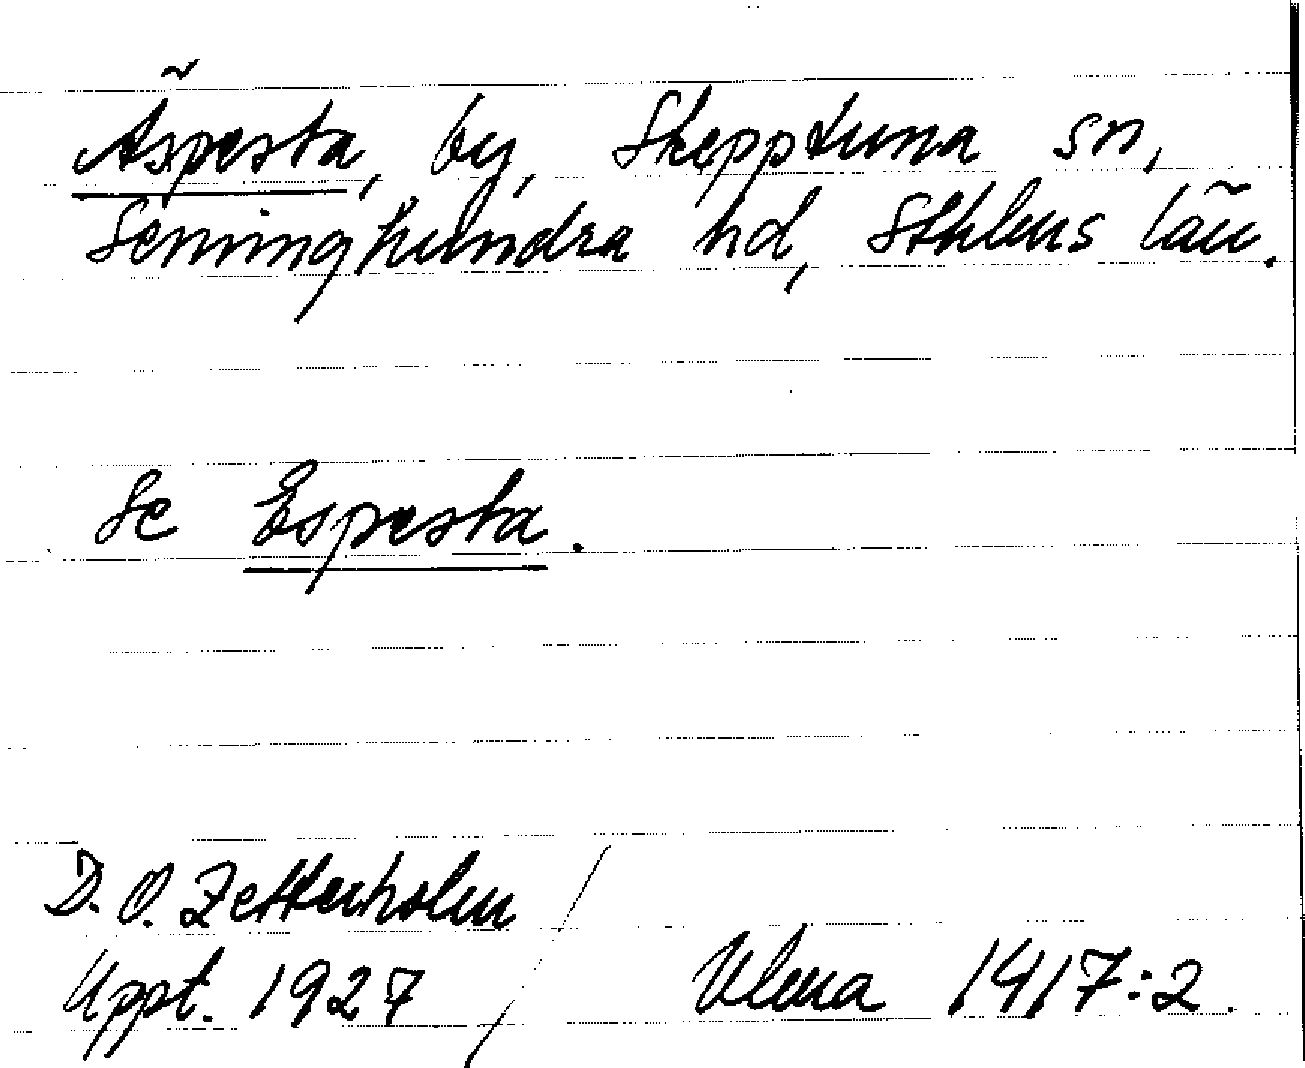 Äspesta, by, Skepptuna sn,
Seminghundra hd, Sthlms län.
Se Espesta.
D. O. Zetterholm
Uppt. 1927
Ulma 1417:2.